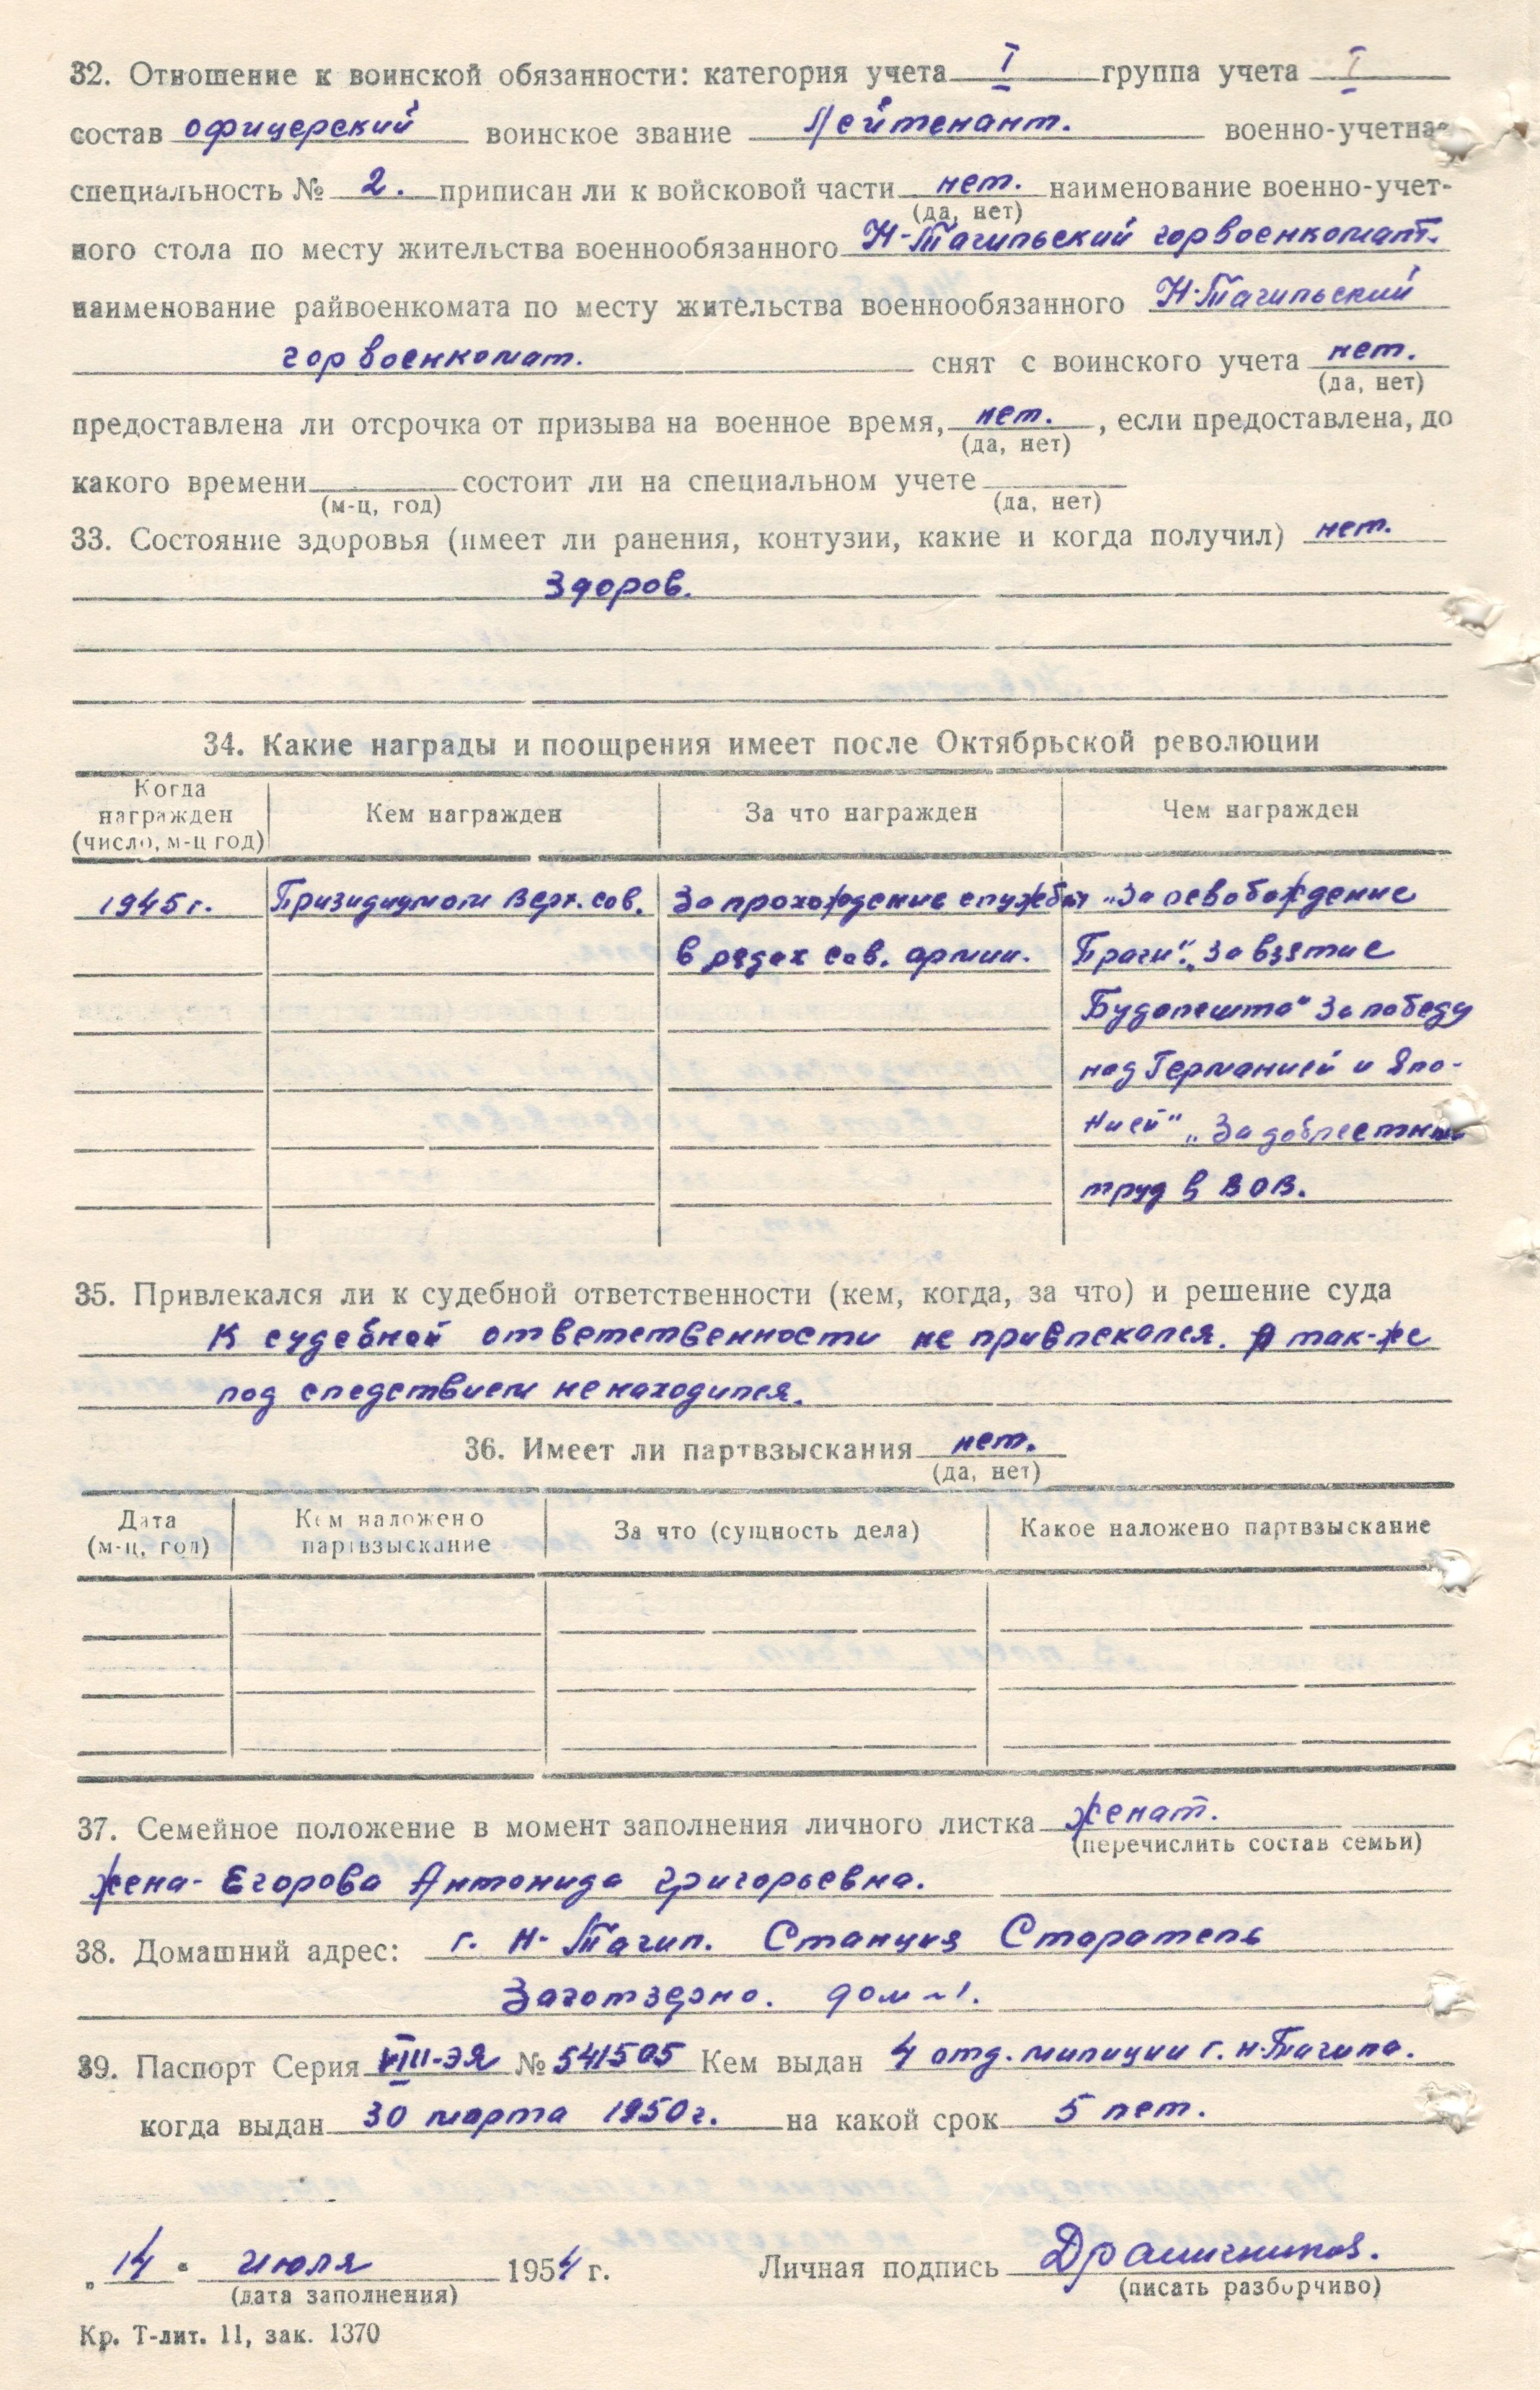 32. Отношение к воинской обязанности: категория учета I группа учета I
состав офицерский воинское звание Лейтенант. военно-учетная
специальность № 2. приписан ли к войсковой части нет. наименование военно-учет-
(да, нет)
ного стола по месту жительства военнообязанного Н-Тагильский горвоенкомат.
наименование райвоенкомата по месту жительства военнообязанного Н-Тагильский
горвоенкомат. снят с воинского учета нет.
(да, нет)
предоставлена ли отсрочка от призыва на военное время, нет. , если предоставлена, до
(да, нет)
какого времени состоит ли на специальном учете
(м-ц, год) (да, нет)
33. Состояние здоровья (имеет ли ранения, контузии, какие и когда получил) нет.
Здоров.
34. Какие награды и поощрения имеет после Октябрьской революции
Когда награжден (число, м-ц год) Кем награжден За что награжден Чем награжден
1945 г. Призидиумом Верх. сов. За прохождение службы „За освобождение
в рядах сов. армии. Праги". „За взятие
Будапешта" За победу
над Германией и Япо-
нией" „За добрестный
труд в ВОВ.
35. Привлекался ли к судебной ответственности (кем, когда, за что) и решение суда
К судебной ответственности не привлекался. А так-же
под следствием не находился.
36. Имеет ли партвзыскания нет.
(да, нет)
Дата (м-ц, год) Кем наложено партвзыскание За что (сущность дела) Какое наложено партвзыскание
37. Семейное положение в момент заполнения личного листка женат.
(перечислить состав семьи)
жена- Егорова Антонида Григорьевна.
38. Домашний адрес: г. Н-Тагил. Станция Старатель
Заготзерно. дом ~ 1.
39. Паспорт Серия VIII-ЭЯ № 541505 Кем выдан 4 отд. милиции г. Н-Тагила.
когда выдан 30 марта 1950 г. на какой срок 5 лет.
„ 14 " июля 1954 г. Личная подпись
(дата заполнения) (писать разборчиво)
Кр. Т-лит. 11, зак. 1370